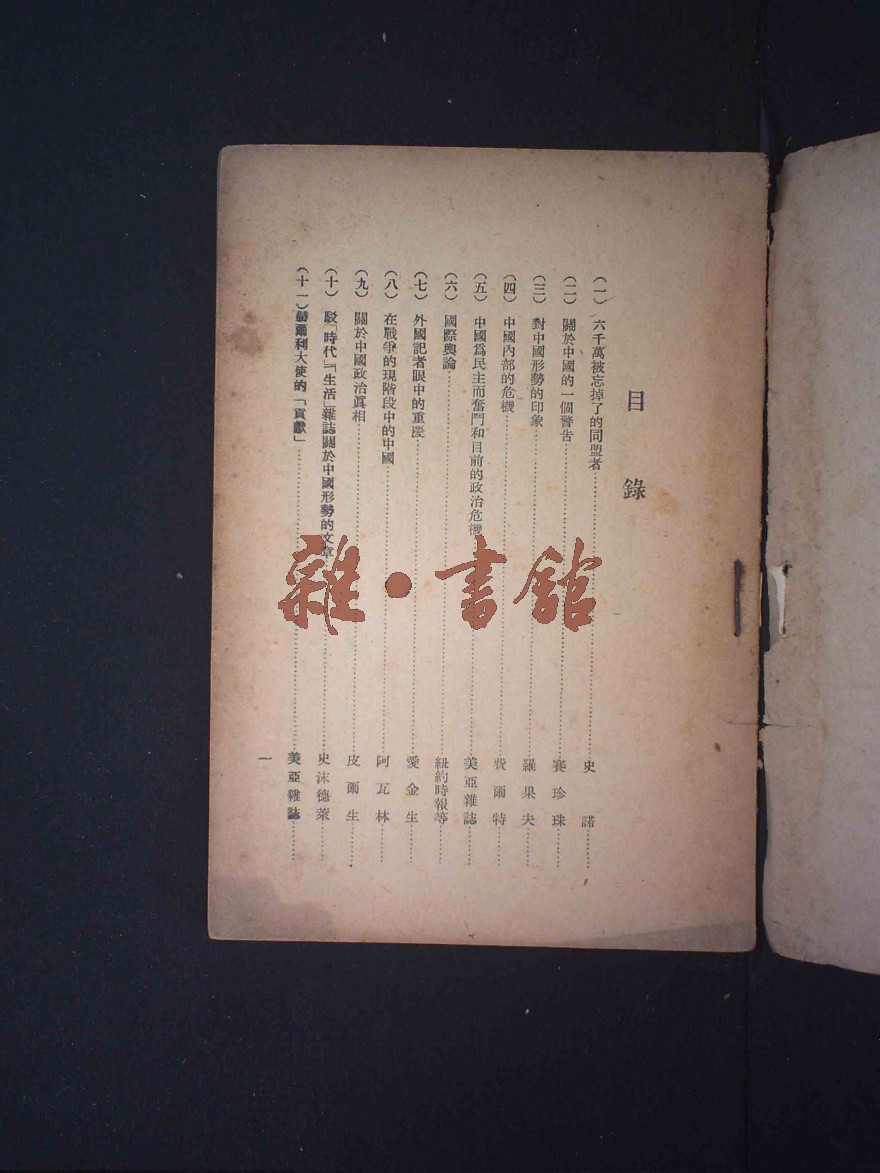 目錄
(一) 六千萬被忘掉了的同盟者……史諾……
(二) 關於中國的一個警告……賽珍珠……
(三) 對中國形勢的印象……羅果夫……
(四) 中國內部的危機……費爾特……
(五) 中國爲民主而奮鬥和目前的政治危機……美亞雜誌……
(六) 國際輿論……紐約時報等……
(七) 外國記者眼中的重慶……愛金生……
(八) 在戰爭的現階段中的中國……阿瓦林……
(九) 關於中國政治眞相……皮爾生……
(十) 駁「時代」「生活」雜誌關於中國形勢的文章……史沫德萊……
(十一) 赫爾利大使的「貢獻」……美亞雜誌……
一
雜·書館